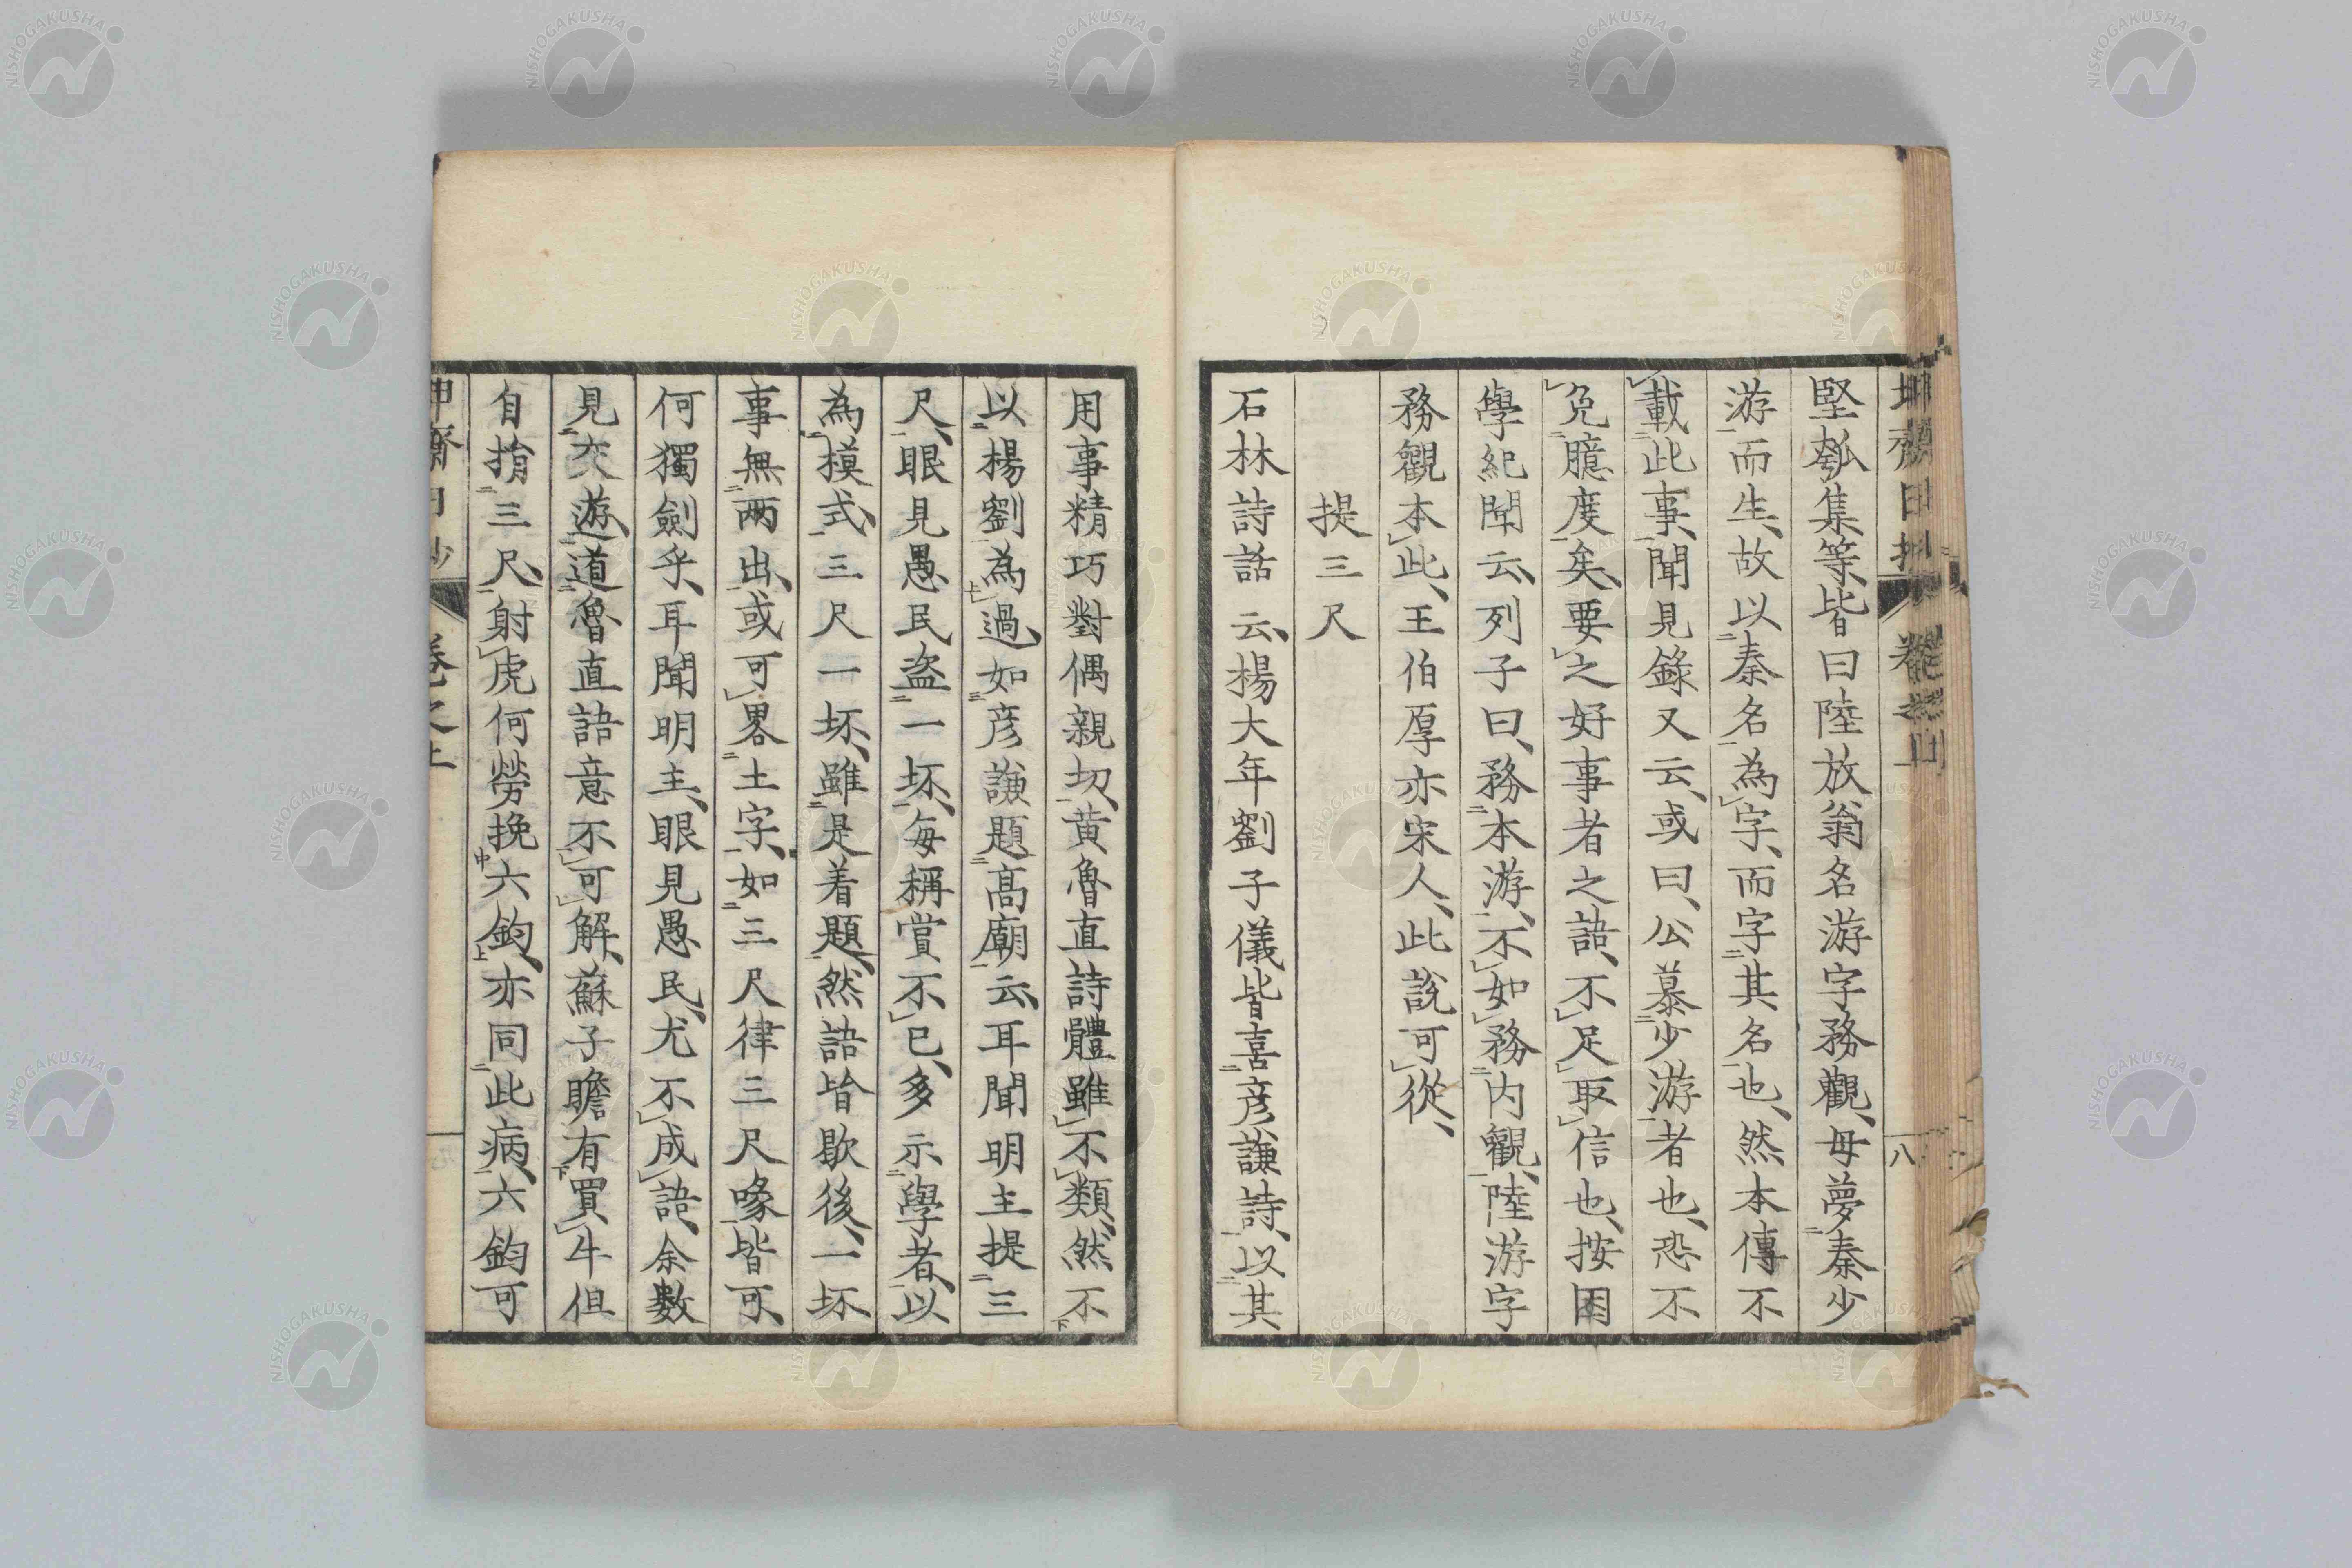 堅瓠集等、皆曰陸放翁名游字務觀、母夢秦少
游而生、故以秦名為字、而字其名也、然本傳不
載此事、聞見錄又云、或曰、公慕少游者也、恐不
免臆度矣、要之好事者之語、不足取信也、按困
學紀聞云、列子曰、務本游、不如務内觀、陸游字
務觀本此、王伯厚亦宋人、此說可從、
提三尺
石林詩話云、楊大年劉子儀皆喜彥謙詩、以其
八
用事精巧對偶親切、黃魯直詩體雖不類、然不
以楊劉為過、如彥謙題高廟云、耳聞明主提三
尺、眼見愚民盜一坏、每稱賞不已、多示學者、以
為模式、三尺一坏、雖是着題、然語皆歇後、一坏
事無兩出、或可畧土字、如三尺律三尺喙皆可、
何獨劍乎、耳聞明主、眼見愚民、尤不成語、余數
見交遊、道魯直語意不可解、蘇子瞻有買牛但
自捐三尺、射虎何勞挽六鈞、亦同此病、六鈞可
卷之上
NISHOGAKUSHA